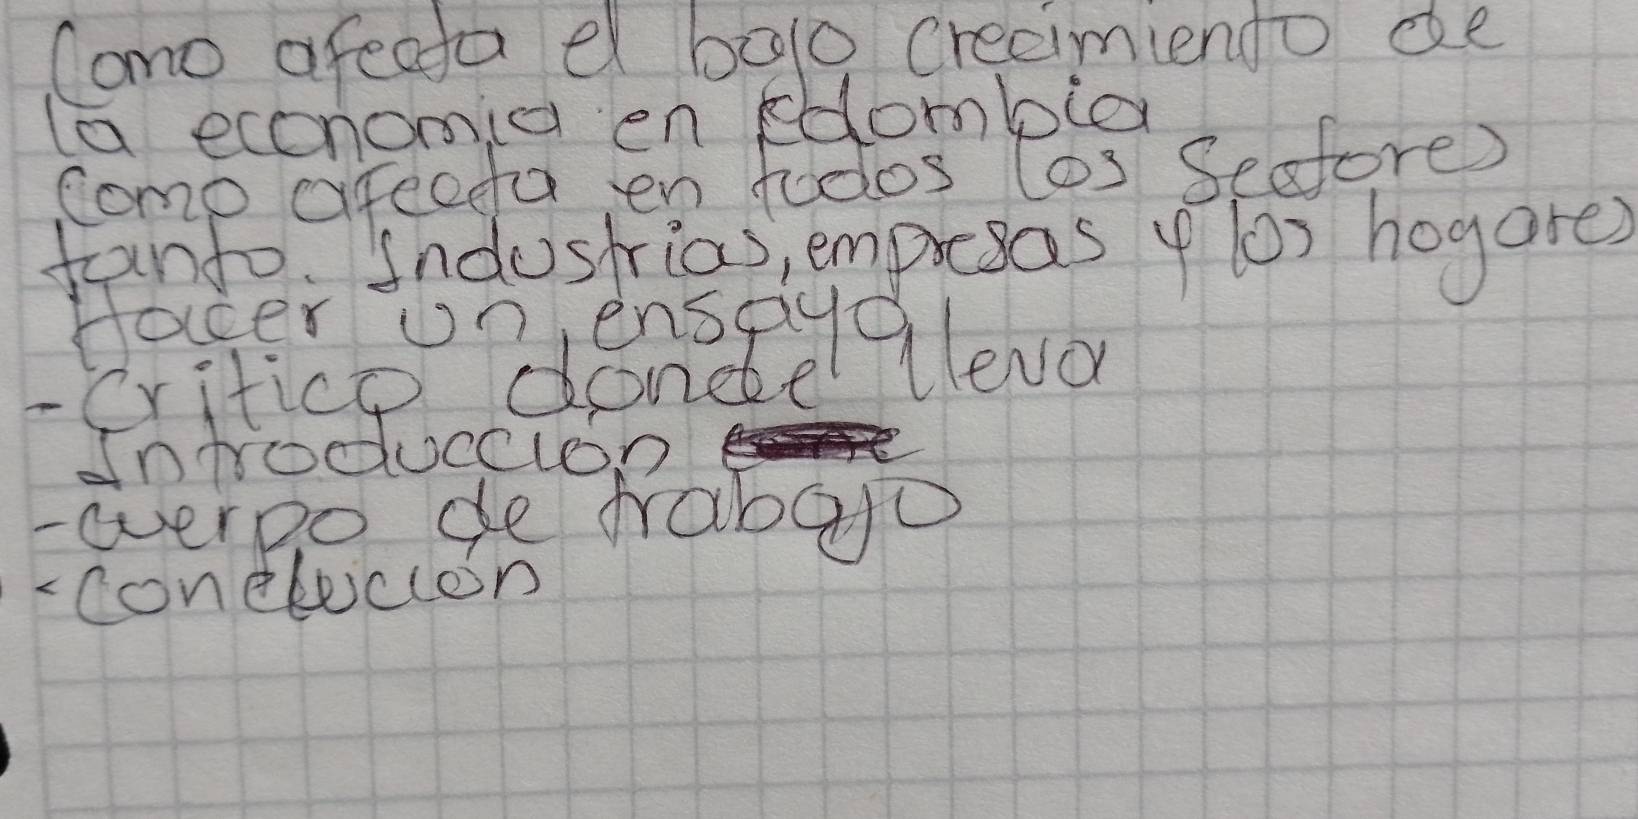 Como afecta el bajo crecimiento de
la economia en Colombia
Como afecta en todos los Sectores
tanto. Industrias, empresas y los hogares
Hacer un ensayo
- Critico donde lleva
Introduccion
- cuerpo de trabajo
- conclucion